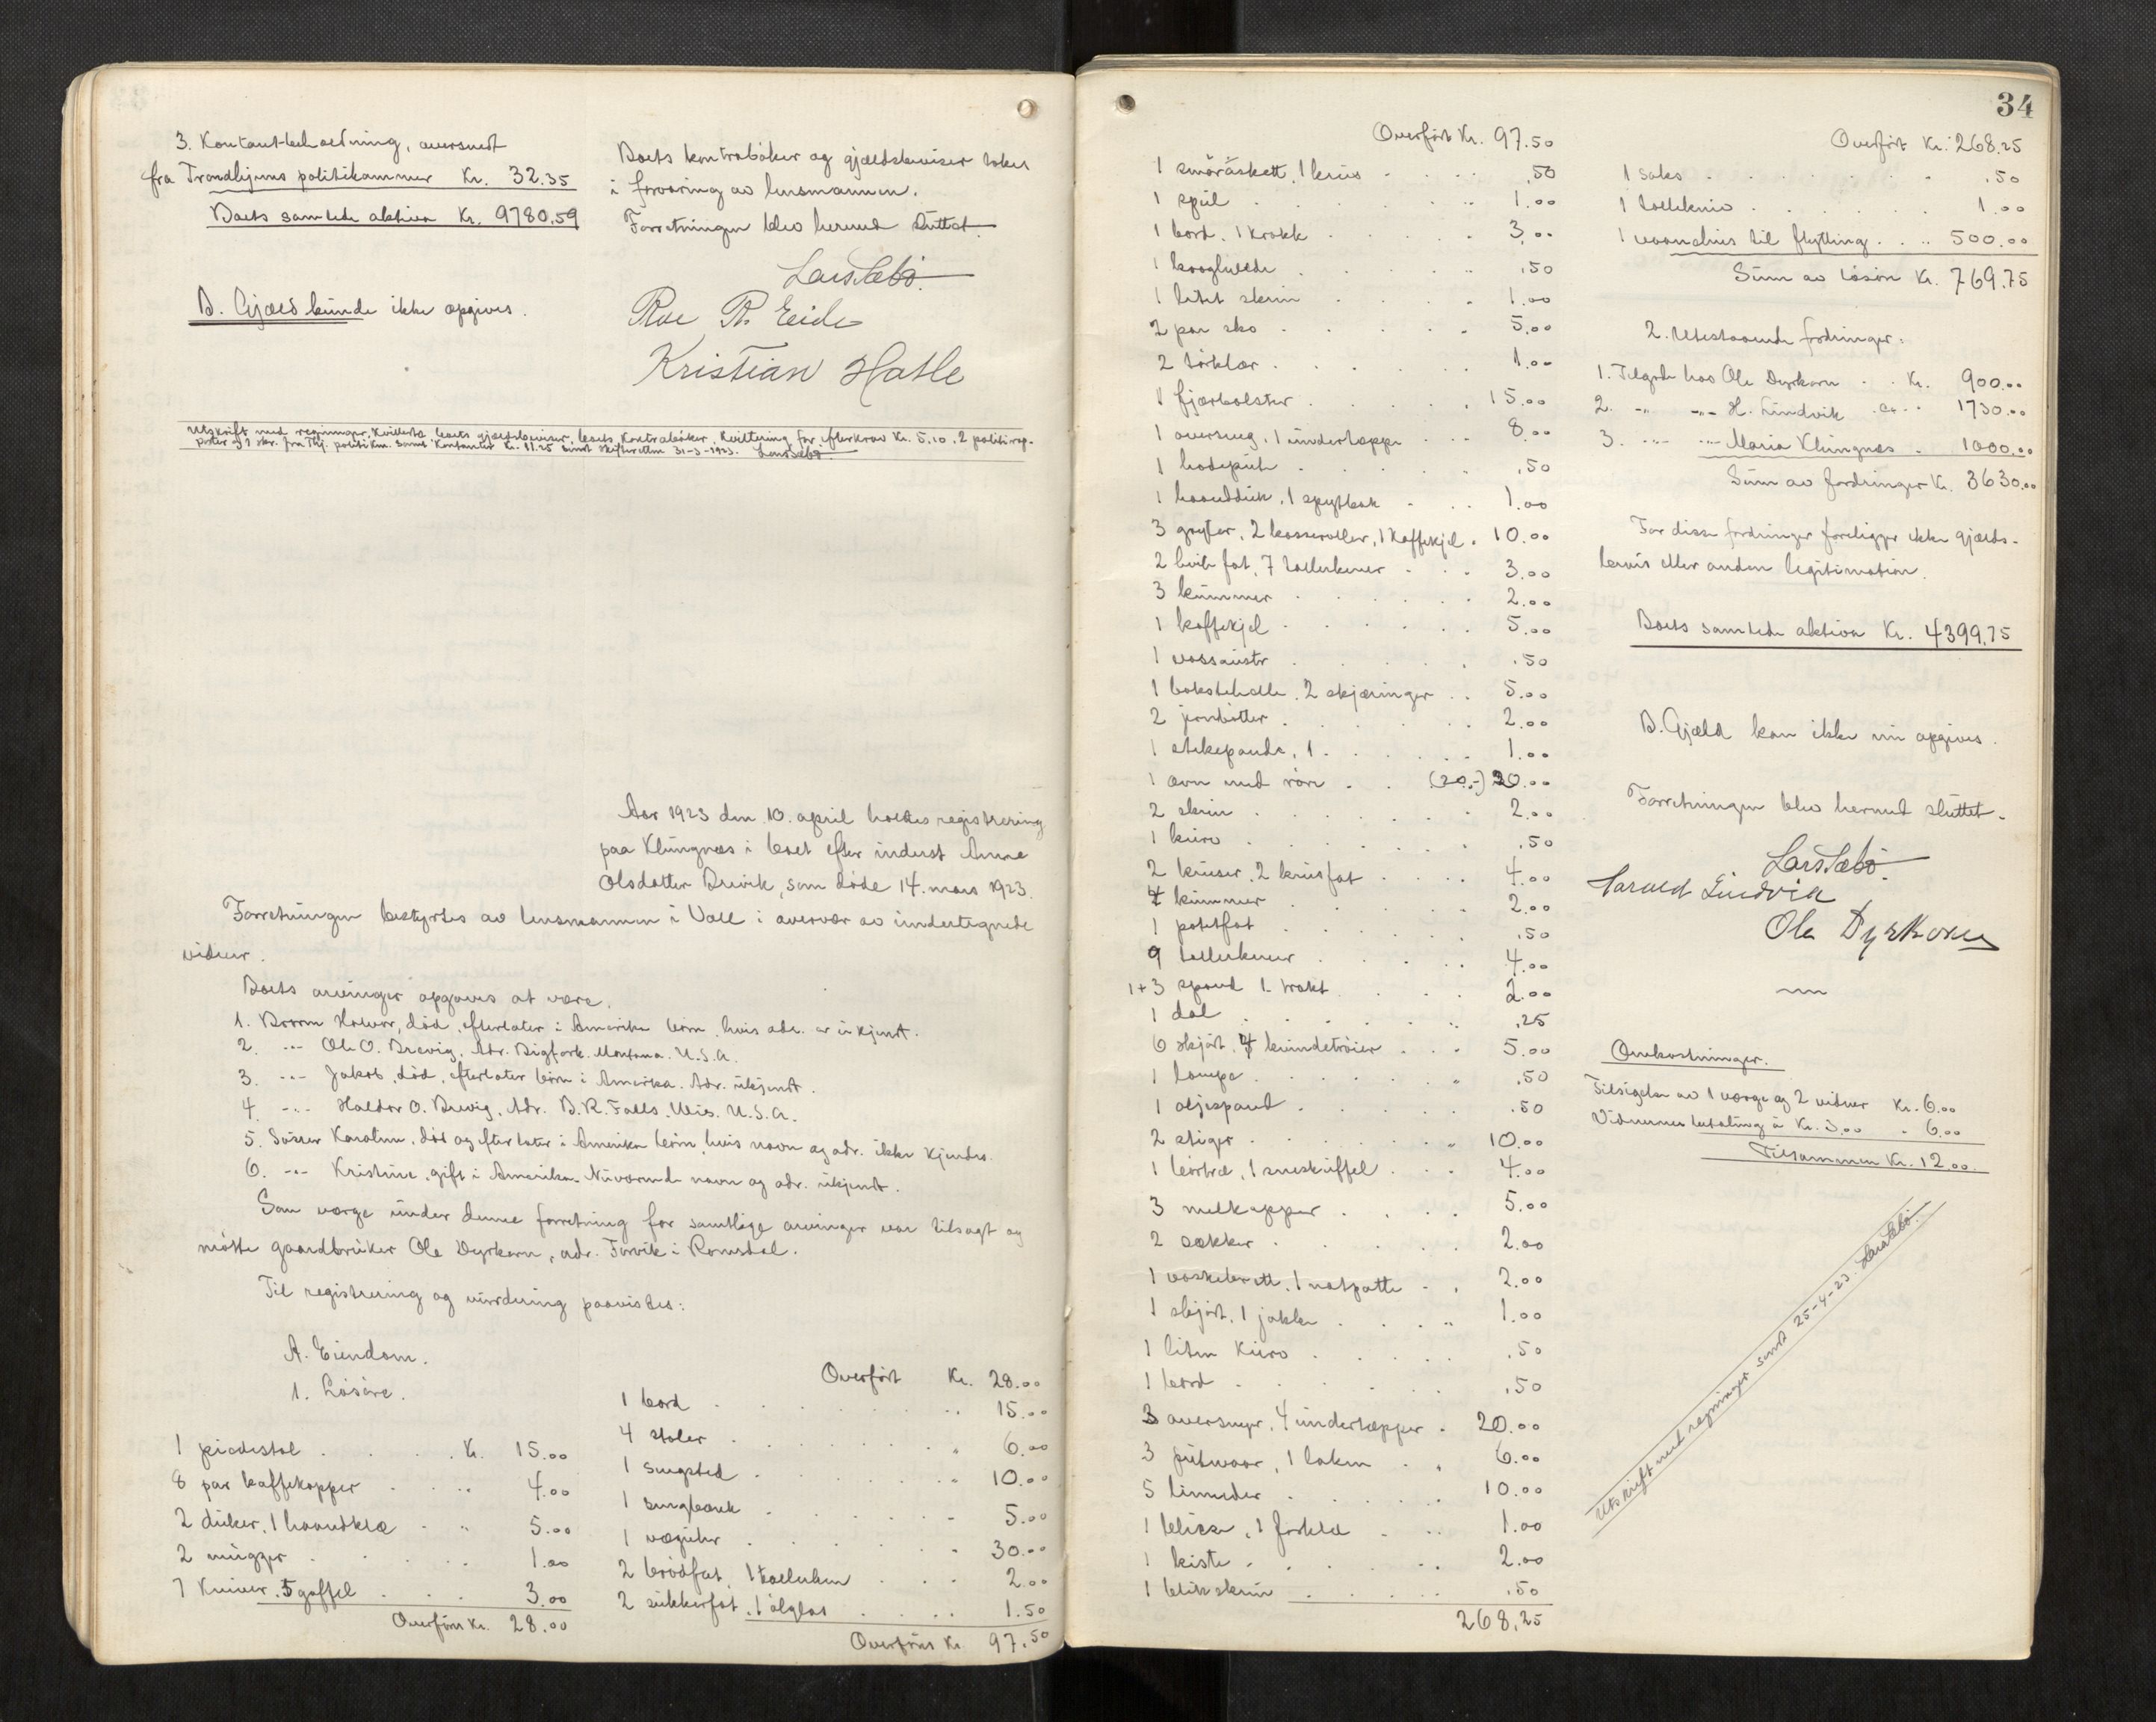 3. Kontantbeholdning, oversendt
fra Trondhjems politikammer Kr. 32.35
Boets samlede aktiva Kr. 9780.59
B. Gjæld kunde ikke opgives.
Boets kontrabøker og gjældsbeviser tokes
i forvaring av lensmannen.
Forretningen blev hermed sluttet.
Lars Sæbø.
Roe R. Eide
Kristian Hatle
Utskrift med regninger, kvitterte boets gjældsbeviser, boets kontrabøker, kvittering for efterkrav Kr. 5.10, 2 politirap-
porter og 1 skr. fra Thj. politikm. samt kontanter Kr. 11.25 sendt skifteretten 31-3-1923. Lars Sæbø.
Aar 1923 den 10. april holdtes registrering
paa Klungnes i boet efter inderst Anne
Olsdatter Brevik, som døde 14. mars 1923.
Forretningen bestyrtes av lensmannen i Voll i overvær av undertegnede
vidner.
Boets arvinger opgaves at være.
1. Broren Halvor, død, efterlater i Amerika børn, hvis adr. er ukjendt.
2. -"- Ole O. Brevig, Adr. Bigfork. Montana. U.S.A.
3. -"- Jakob, død, efterlater børn i Amerika. Adr. ukjendt.
4. -"- Haldor O. Brevig, Adr. B.R. Falls. Wis. U.S.A.
5. Søster Karoline, død og efterlater i Amerika børn, hvis navn og adr. ikke kjendes.
6. -"- Kristine, gift i Amerika. Nuværende navn og adr. ukjendt.
Som værge under denne forretning for samtlige arvinger var tilsagt og
møtte gaardbruker Ole Dyrkorn, adr. Torvik i Romsdal.
Til registrering og vurdering paavistes:
A. Eiendom.
1. Løsøre.
1 piedestal . . . . Kr. 15.00
8 par kaffekopper . . . " 4.00
2 duker, 1 haandklæ . " 5.00
2 mugger . . . . . 1.00
7 kniver, 5 gaffel . . . 3.00
Overføres Kr. 28.00
Overført Kr. 28.00
1 bord . . . . . " 15.00
4 stoler . . . . . " 6.00
1 sengsted . . . . . " 10.00
1 sengbænk . . . . . " 5.00
1 væguhr . . . . . " 30.00
2 brødfat, 1 tallerken . . . 2.00
2 sukkerfat, 1 ølglas . . . . 1.50
Overføres Kr. 97.50
34
Overført Kr. 97.50
1 smørask­ett, 1 krus . . . . .50
1 speil . . . . . " 1.00
1 bord, 1 krakk . . . . 3.00
1 . . . " .50
1 litet skrin . . . . 1.00
2 par sko . . . . . 5.00
2 tørklær . . . . . 1.00
1 fjærbolster . . . . . 15.00
1 overseng, 1 undertæppe . . . 8.00
1 hodepute . . . . . .50
1 haandduk, 1 spytbak . . . 1.00
3 gryter, 2 kasseroller, 1 kaffekjel . 10.00
2 hvite fat, 7 tallerkener . . . 3.00
3 kummer . . . . . 2.00
1 kaffekjel . . . . . 5.00
1 vassauster . . . . . .50
1 bakstehelle, 2 skjæringer . . 5.00
2 jernbøtter . . . . . 2.00
1 stekepande, 1 . . . . . 1.00
1 ovn med rør . . (20.-) 20.00
2 skrin . . . . . 2.00
1 kurv . . . . . .50
2 kruser, 2 krusfat . . . . 4.00
4 kummer . . . . . 2.00
1 potetfat . . . . . .50
9 tallerkener . . . . . 4.00
1+3 spand 1 trakt . . . . 2.00
1 dal . . . . . " .25
6 skjørt, 4 kvindetrøier . . . 5.00
1 lampe . . . . . " .50
1 oljespand . . . . . .50
2 stiger . . . . . " 10.00
1 børtræ, 1 sneskuffel . . . 4.00
3 melkupper . . . . 5.00
2 sækker . . . . . 2.00
1 vaskebrett, 1 natpotte . . 2.00
1 skjørt, 1 jakke . . . . " 1.00
1 liten kurv . . . . . .50
1 bord . . . . . .50
3 overenger, 4 undertæpper . 20.00
3 putevaar, 1 laken . . 6.00
5 linneder . . . . . 10.00
1 bluse, 1 forklæ . . . 1.00
1 kiste . . . . . 2.00
1 blikskrin . . . . . .50
268.25
Overført Kr. 268.25
1 saks . . . . . .50
1 tollekniv . . . . . 1.00
1 vaanehus til flytting . . " 500.00
Sum av løsøre Kr. 769.75
2. Utestaaende fordringer:
1. Tilgode hos Ole Dyrkorn . . Kr. 900.00
2. -"- -"- H. Lindvik ca. . . 1730.00
3. -"- -"- Maria Klungnes . 1000.00
Sum av fordringer Kr. 3630.00
For disse fordringer foreligger ikke gjælds-
bevis eller anden legitimation.
Boets samlede aktiva Kr. 4399.75
B. Gjæld kan ikke nu opgives.
Forretningen blev hermed sluttet.
Lars Sæbø.
Harald Lindvik
Ole Dyrkorn
Omkostninger.
Tilsigelse av 1 værge og 2 vidner Kr. 6.00
Vidnernes betaling à Kr. 3.00 " 6.00
Tilsammen Kr. 12.00.
Utskrift med regninger sendt 25-4-23. Lars Sæbø.